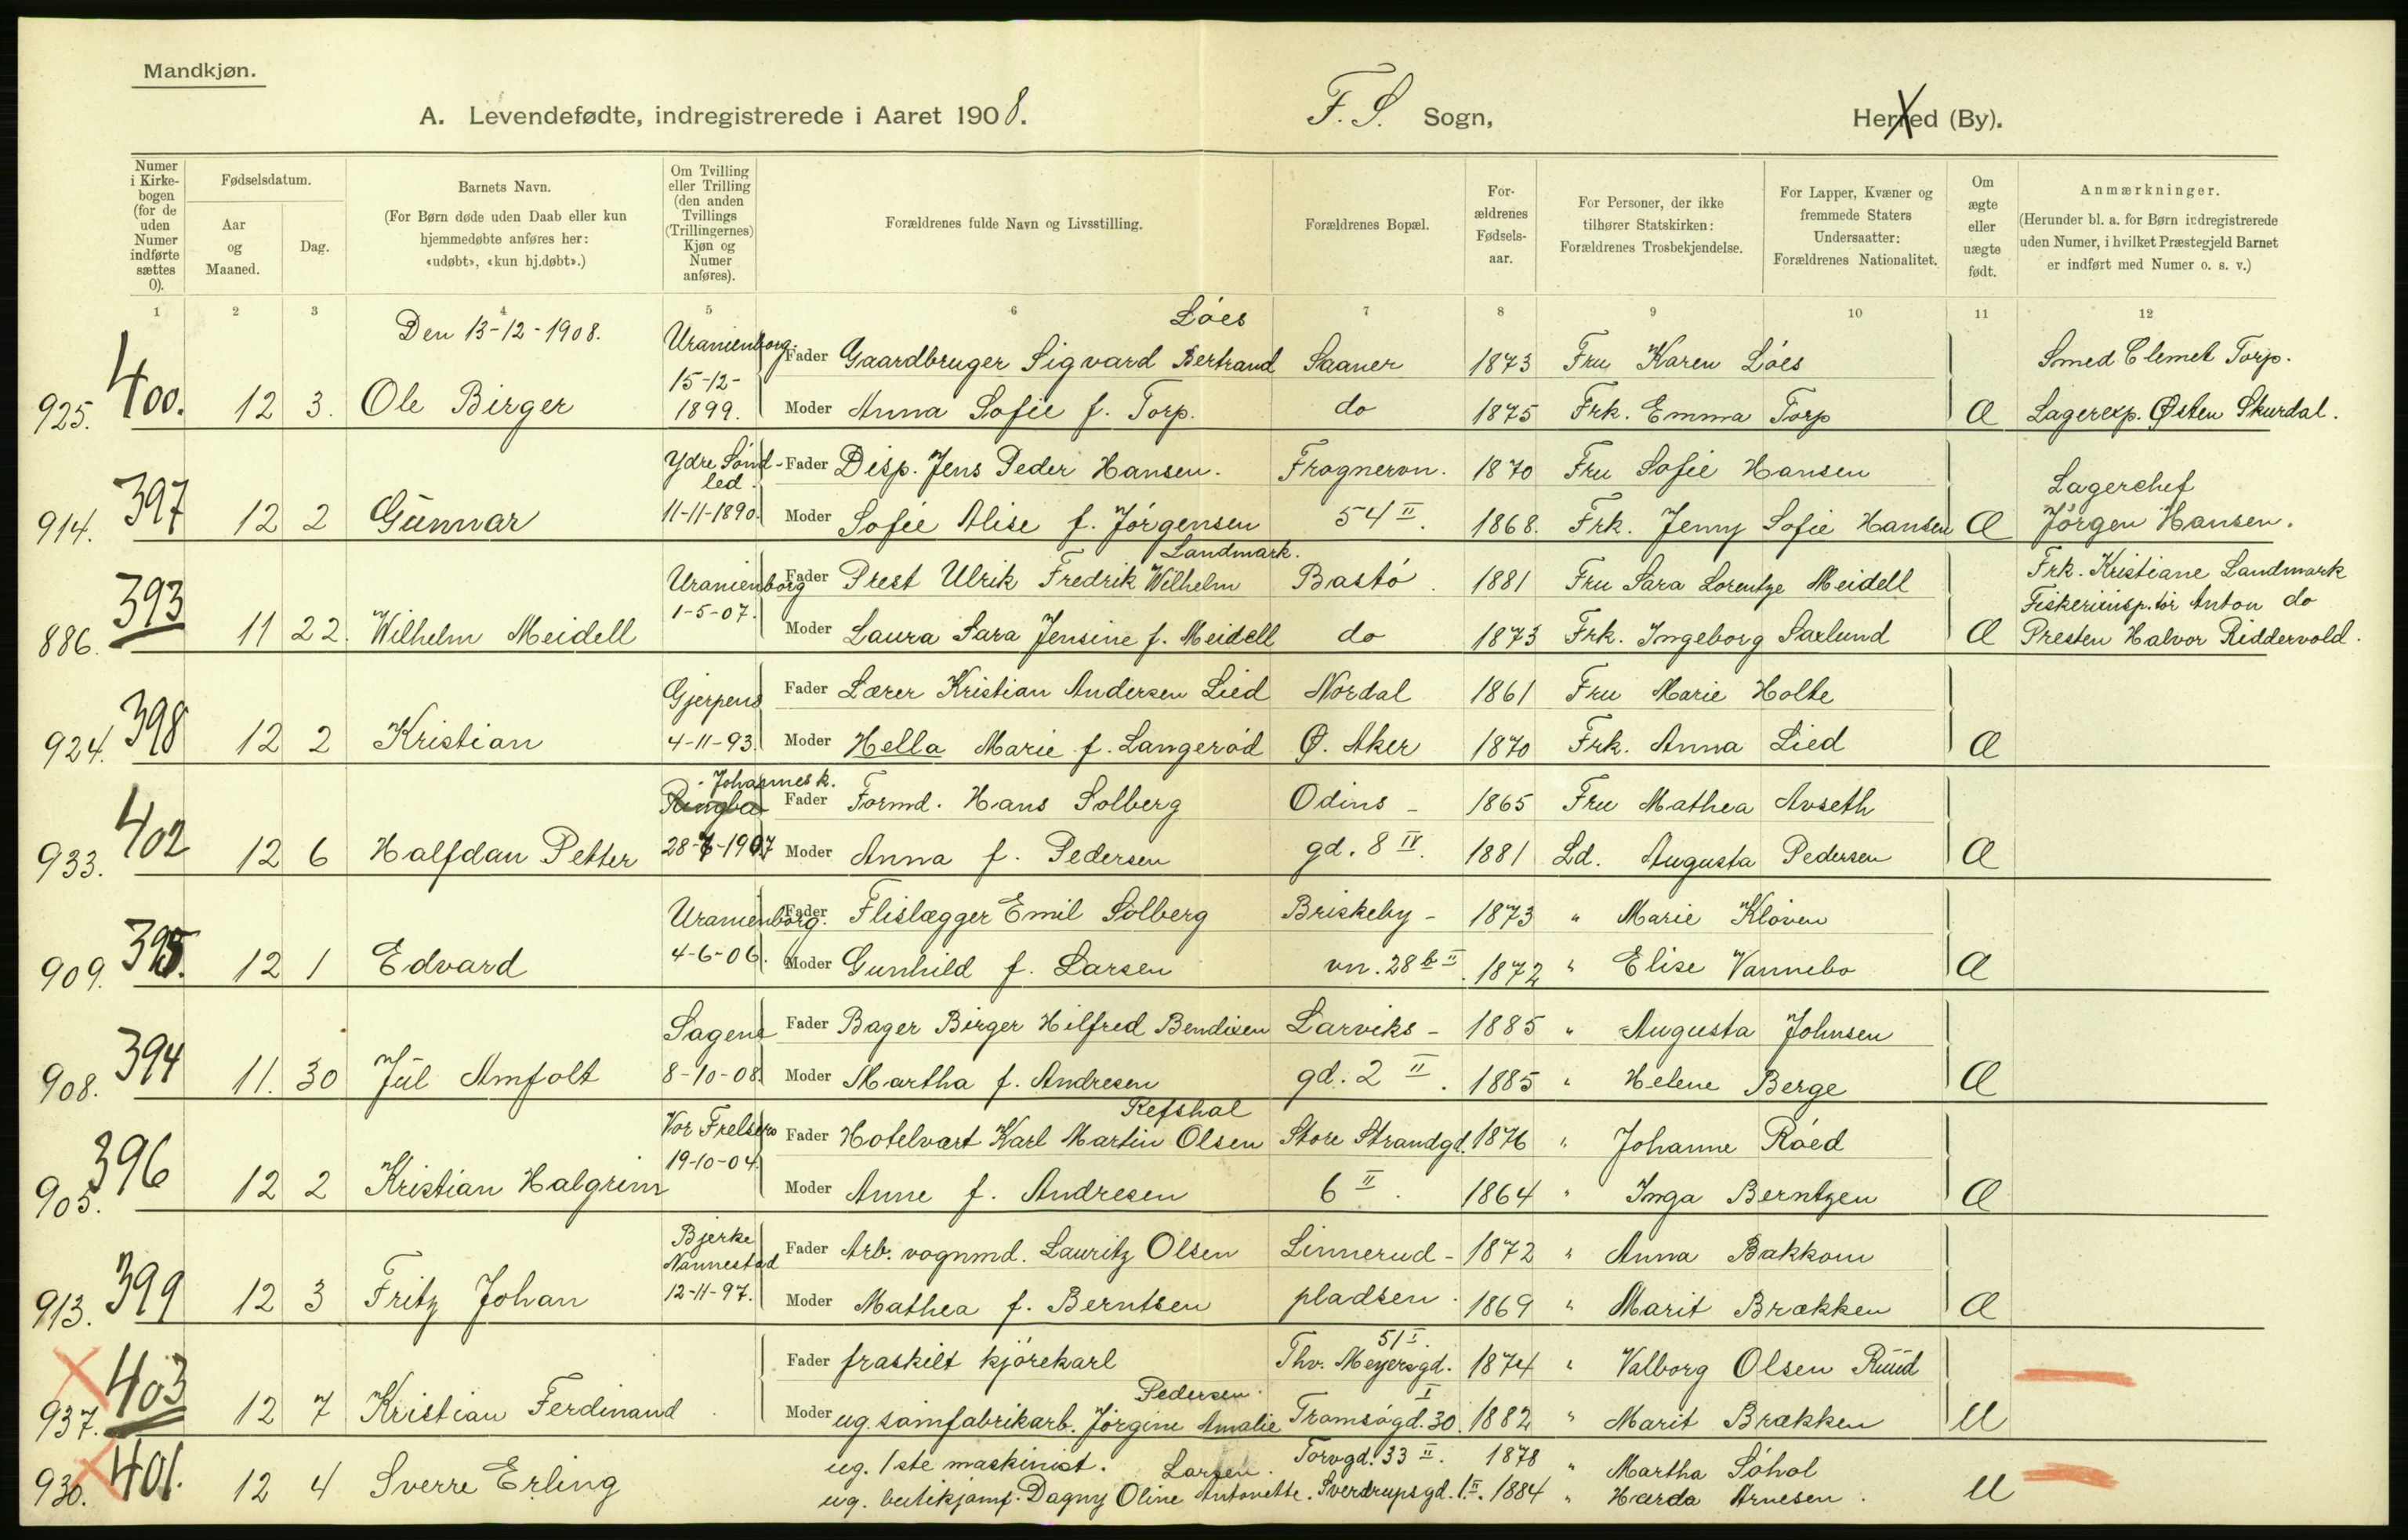 Mandkjøn.
A. Levendefødte, indregistrerede i Aaret 1908. F. S. Sogn, Herred (By).
Numer i Kirkebogen (for de uden Numer indførte sættes 0).
Fødselsdatum.
Aar og Maaned.
Dag.
Barnets Navn.
(For Børn døde uden Daab eller kun hjemmedøbte anføres her: «udøbt», «kun hj.døbt».)
Om Tvilling eller Trilling (den anden Tvillings (Trillingernes) Kjøn og Numer anføres).
Forældrenes fulde Navn og Livsstilling.
Forældrenes Bopæl.
Forældrenes Fødselsaar.
For Personer, der ikke tilhører Statskirken: Forældrenes Trosbekjendelse.
For Lapper, Kvæner og fremmede Staters Undersaatter: Forældrenes Nationalitet.
Om ægte eller uægte født.
Anmærkninger.
(Herunder bl. a. for Børn indregistrerede uden Numer, i hvilket Præstegjeld Barnet er indført med Numer o. s. v.)
1 2 3 4 5 6 7 8 9 10 11 12
Den 13-12-1908.
Løes
Uranienborg. Fader Gaardbruger Sigvard Bertrand Saaner 1873 Fru Karen Løes Smed Clemet Torp.
925. 400. 12 3. Ole Birger 15-12-1899. Moder Anna Sofie f. Torp. do 1875 Frk. Emma Torp Æ Lagerexp. Østen Skurdal.
Ydre Sønd-led. Fader Disp. Jens Peder Hansen. Frognervn. 1870 Fru Sofie Hansen Lagerchef
914. 397 12 2 Gunnar 11-11-1890. Moder Sofie Alise f. Jørgensen 54 II. 1868. Frk. Jenny Sofie Hansen Æ Jørgen Hansen.
Landmark.
Uranienborg Fader Prest Ulrik Fredrik Wilhelm Bastø. 1881 Fru Sara Lorentze Meidell Frk. Kristiane Landmark
Fiskeriinsp.tør Anton do
886. 393 11 22. Wilhelm Meidell 1-5-07. Moder Laura Sara Jensine f. Meidell do 1873 Frk. Ingeborg Saxlund Æ Presten Halvor Riddervold.
Gjerpens Fader Lærer Kristian Andersen Lied Nordal 1861 Fru Marie Holte
924. 398 12 2 Kristian 4-11-93. Moder Hella Marie f. Langerød Ø. Aker 1870 Frk. Anna Lied Æ
Johannesk.
Fader Formd. Hans Solberg Odins- 1865 Fru Mathea Avseth
933. 402 12 6 Halfdan Petter 28-7-1907 Moder Anna f. Pedersen gd. 8 IV. 1881 Ld. Augusta Pedersen Æ
Uranienborg. Fader Flislægger Emil Solberg Briskeby- 1873 " Marie Kløven
909. 395. 12 1 Edvard 4-6-06. Moder Gunhild f. Larsen vn. 28 b II. 1872 " Elise Vannebo Æ
Sagene Fader Bager Birger Hilfred Bendixen Larviks- 1885 " Augusta Johnsen
908. 394 11. 30 Jul Amfolt 8-10-08. Moder Martha f. Andresen gd. 2 II. 1885 " Helene Berge Æ
Refshal
Vor Frelsers Fader Hotelvært Karl Martin Olsen Store Strandgd. 1876 " Johanne Røed
905. 396 12 2 Kristian Halgrim 19-10-04. Moder Anne f. Andresen 6 II. 1864 " Inga Berntzen Æ
Bjerke Nannestad Fader Arb. vognmd. Lauritz Olsen Linnerud- 1872 " Anna Bakkom
913. 399 12 3 Fritz Johan 12-11-97. Moder Mathea f. Berntsen pladsen. 1869 " Marit Brækken Æ
51 I.
Fader fraskilt kjørekarl Thv. Meyersgd. 1874 " Valborg Olsen Ruud
Pedersen. I
937. 403 12 7 Kristian Ferdinand Moder ug. sømfabrikarb. Jørgine Amalie Tromsøgd. 30. 1882 " Marit Brækken U
ug. 1ste maskinist. Larsen. Torvgd. 33 II. 1878 " Martha Søhol
930. 401. 12 4 Sverre Erling ug. butikjomf. Dagny Oline Antonette. Sverdrupsgd. 1. II. 1884 " Harda Arnesen. U